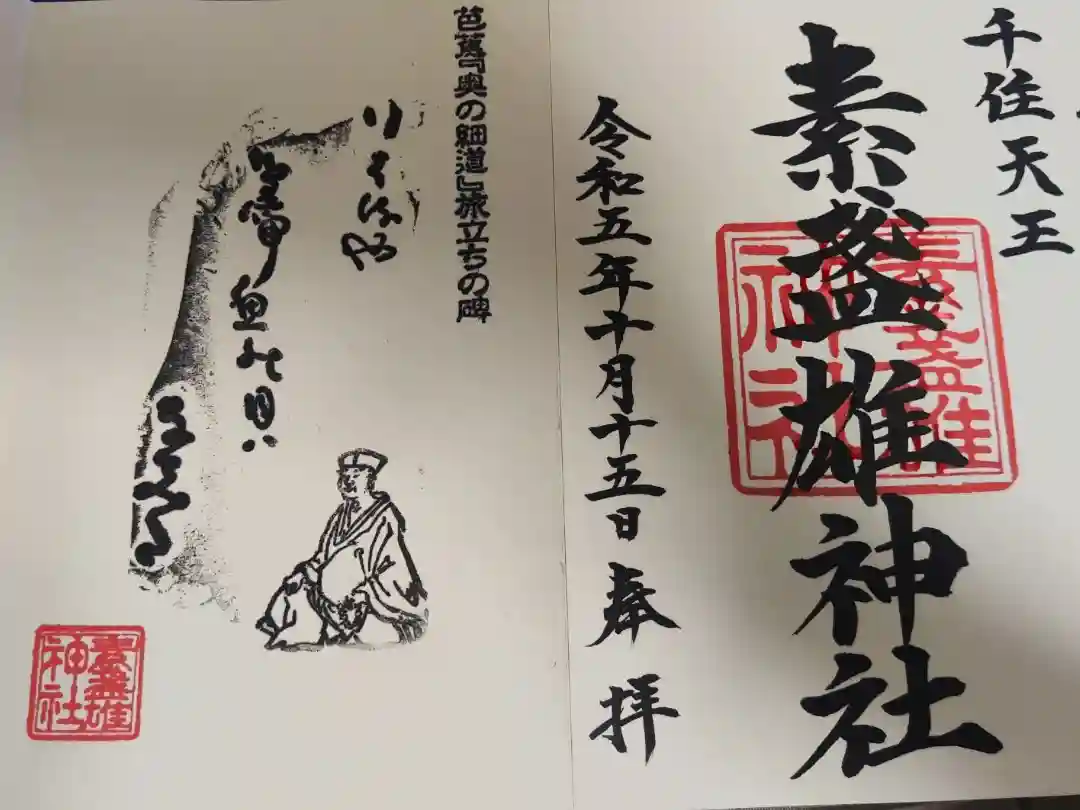 千住天王
素盞雄神社
素盞雄神社
令和五年十月十五日 奉拝
芭蕉『奥の細道』旅立ちの碑
鳥啼魚の目ハ
素盞雄神社